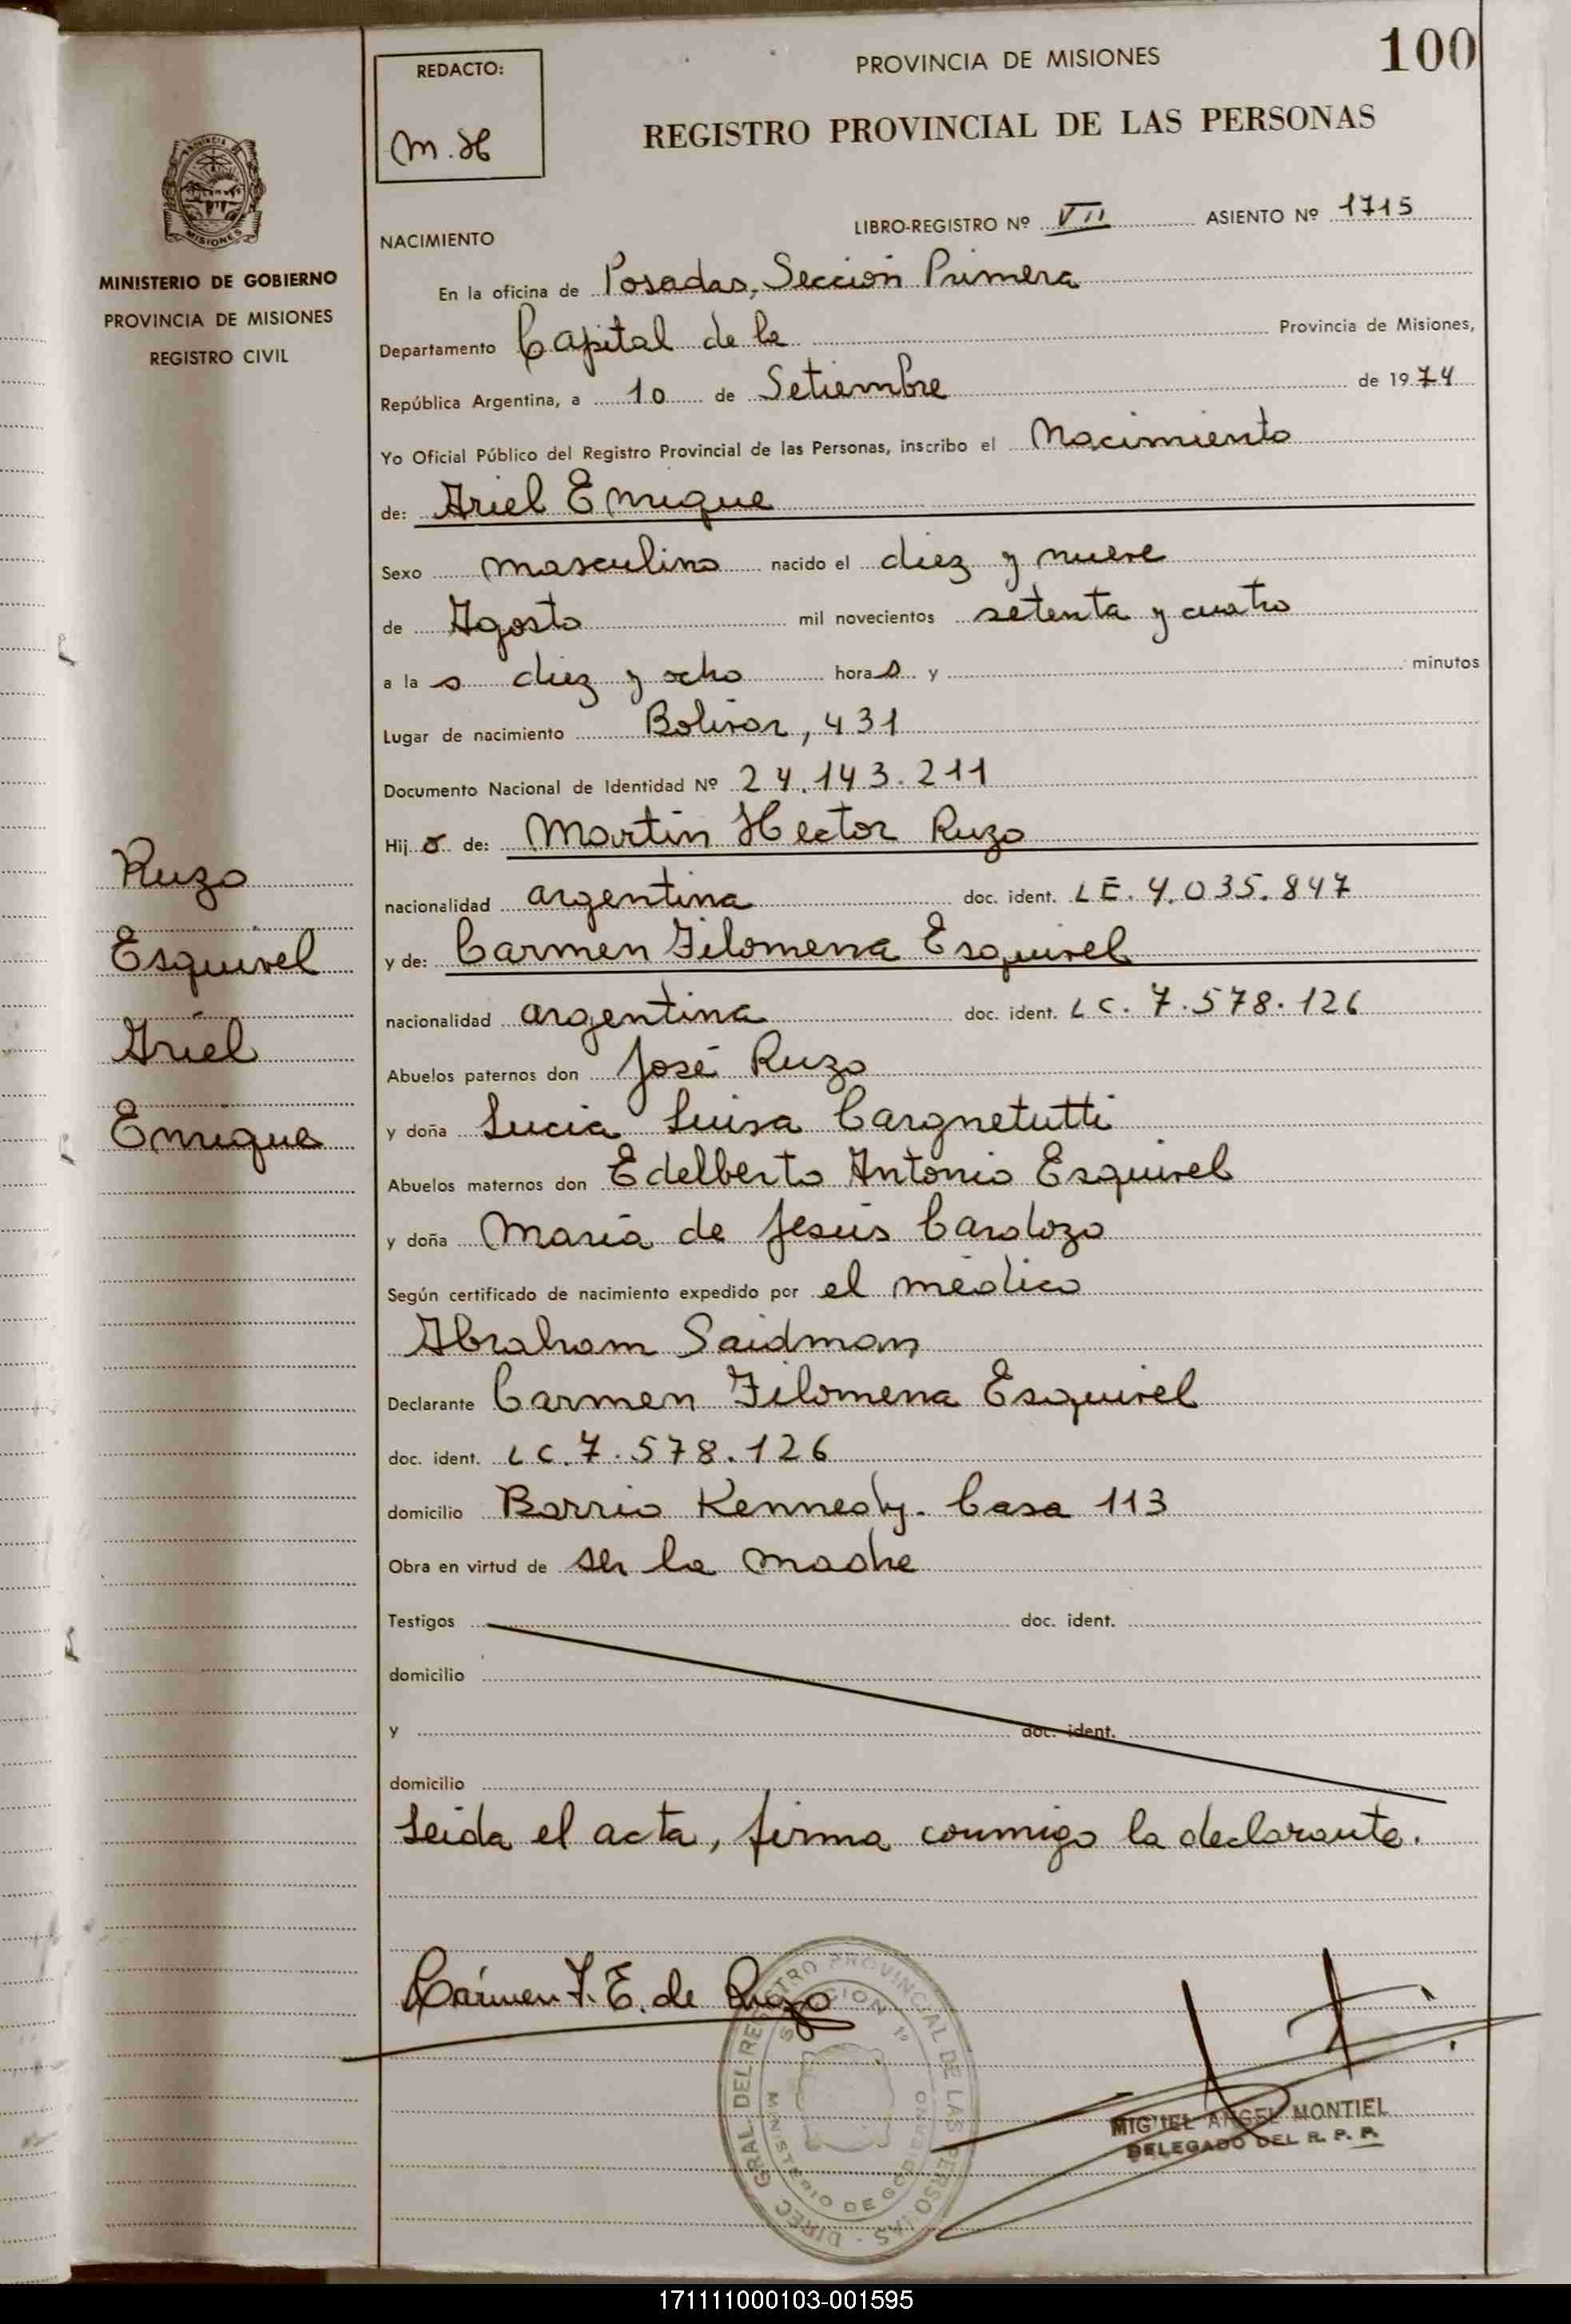 100
REDACTO:
M. H
PROVINCIA DE MISIONES
REGISTRO PROVINCIAL DE LAS PERSONAS
PROVINCIA DE
MISIONES
MINISTERIO DE GOBIERNO
PROVINCIA DE MISIONES
REGISTRO CIVIL
LIBRO-REGISTRO Nº VII ASIENTO Nº 1715
NACIMIENTO
En la oficina de Posadas, Sección Primera
Departamento Capital de la Provincia de Misiones,
República Argentina, a 10 de Setiembre de 1974
Yo Oficial Público del Registro Provincial de las Personas, inscribo el Nacimiento
de: Ariel Enrique
Sexo masculino nacido el diez y nueve
de Agosto mil novecientos setenta y cuatro
a las diez y ocho horas y minutos
Lugar de nacimiento Bolivar, 431
Documento Nacional de Identidad Nº 24.143.211
Hijo de: Martin Hector Ruzo
nacionalidad argentina doc. ident. LE. 4.035.847
y de: Carmen Filomena Esquivel
nacionalidad argentina doc. ident. LC. 7.578.126
Abuelos paternos don José Ruzo
y doña Lucia Luisa Cargnetutti
Abuelos maternos don Edelberto Antonio Esquivel
y doña María de Jesús Cardozo
Según certificado de nacimiento expedido por el médico
Abraham Saidman
Declarante Carmen Filomena Esquivel
doc. ident. LC. 7.578.126
domicilio Barrio Kennedy. Casa 113
Obra en virtud de ser la madre
Testigos doc. ident.
domicilio
y doc. ident.
domicilio
Leida el acta, firma conmigo la declarante.
Ruzo
Esquivel
Ariel
Enrique
Cármen F. E. de Ruzo
DIREC. GRAL. DEL REGISTRO PROVINCIAL DE LAS PERSONAS
SECCION 1º
MINISTERIO DE GOBIERNO
MIGUEL ANGEL MONTIEL
DELEGADO DEL R. P. P.
171111000103-001595